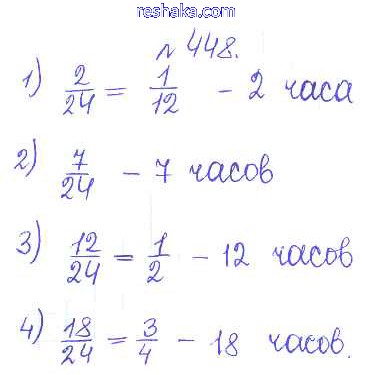 gdzbest.com
reshaka.com
№448.
1) 2/24 = 1/12 - 2 часа
2) 7/24 - 7 часов
3) 12/24 = 1/2 - 12 часов
4) 18/24 = 3/4 - 18 часов.